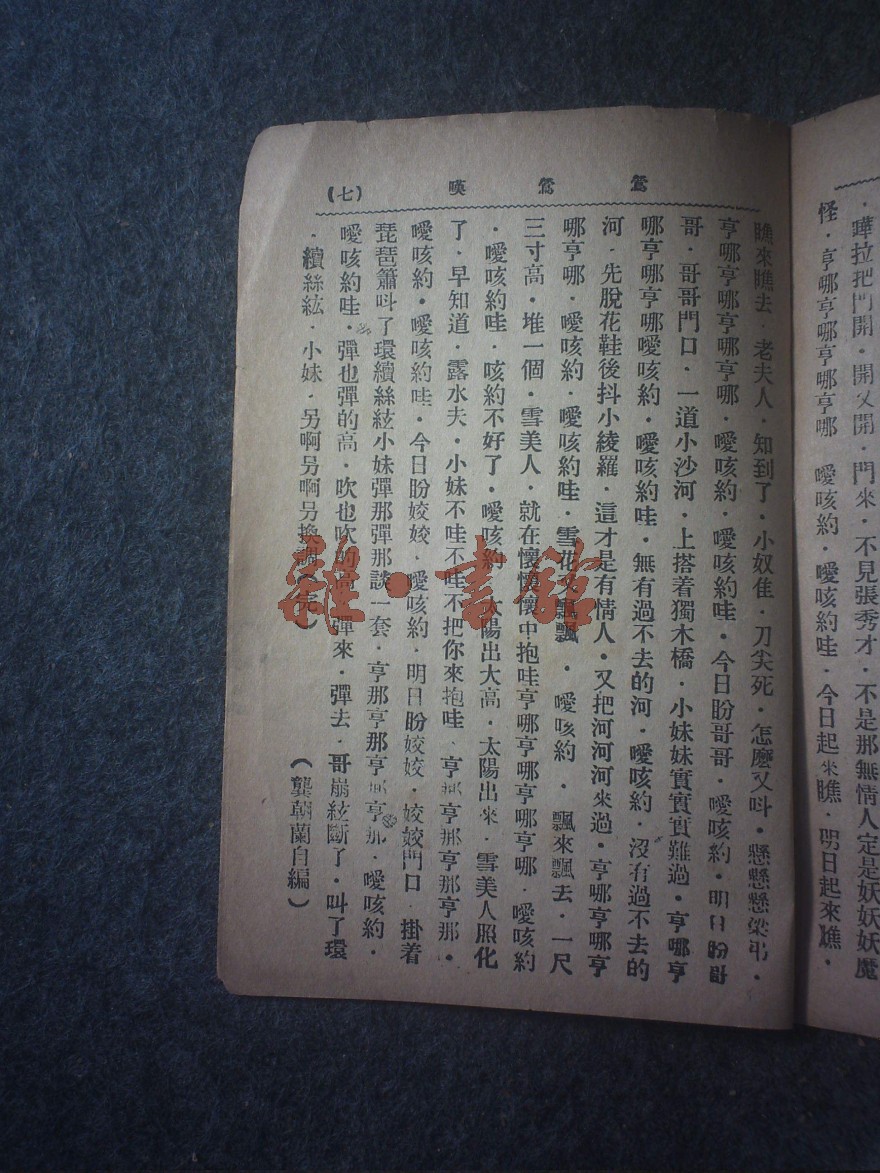 ・嘩拉把門開・開又開・門來・不見張秀才・不是那無情人定是妖妖妖魔
怪・亨哪亨哪亨哪亨哪　噯咳約・噯咳約哇・今日起來瞧・明日起來瞧・
鴛鴦嘆
(七)
瞧來瞧去・老夫人・知到了・小奴隹・刀尖死・怎麽又呌・懸懸懸梁弔・
亨哪亨哪亨哪亨哪・噯咳約・噯咳約哇・今日盼哥哥・噯咳約・明日盼哥
哥・哥哥門口・一道小沙河・上搭着獨木橋・小妹妹實實實難過・亨哪亨
哪亨哪亨哪噯咳約・噯咳約哇・無有過不去的河・噯咳約・沒有過不去的
河・先脫花鞋後抖小綾羅・這才是有情人・又把河河河來過・亨哪亨哪亨
哪亨哪・噯咳約・噯咳約哇・雪花又飄飄・噯咳約・飄來飄去・一尺
三寸高・堆一個・雪美人・就在懷懷懷中抱哇亨哪亨哪亨哪亨哪・噯咳約
・噯咳約哇・咳約不好了・噯咳約・太陽出大高・太陽出來・雪美人照化
了・早知道・露水夫・小妹不哇不哇不把你來抱哇・亨那亨那亨那亨那・
噯咳約・噯咳約哇・今日盼姣姣・噯咳約・明日盼姣姣・姣姣門口・掛着
琵琶簫呌了環續絲絃小妹彈那彈那談一套・亨那亨那亨那亨那・噯咳約・
噯咳約哇・彈也彈的高・吹也吹的高・彈來・彈去・哥崩絃斷了・叫了環
・續絲絃・小妹・另啊另啊另換調(完)
(龔朝蘭自編)
雜・書館